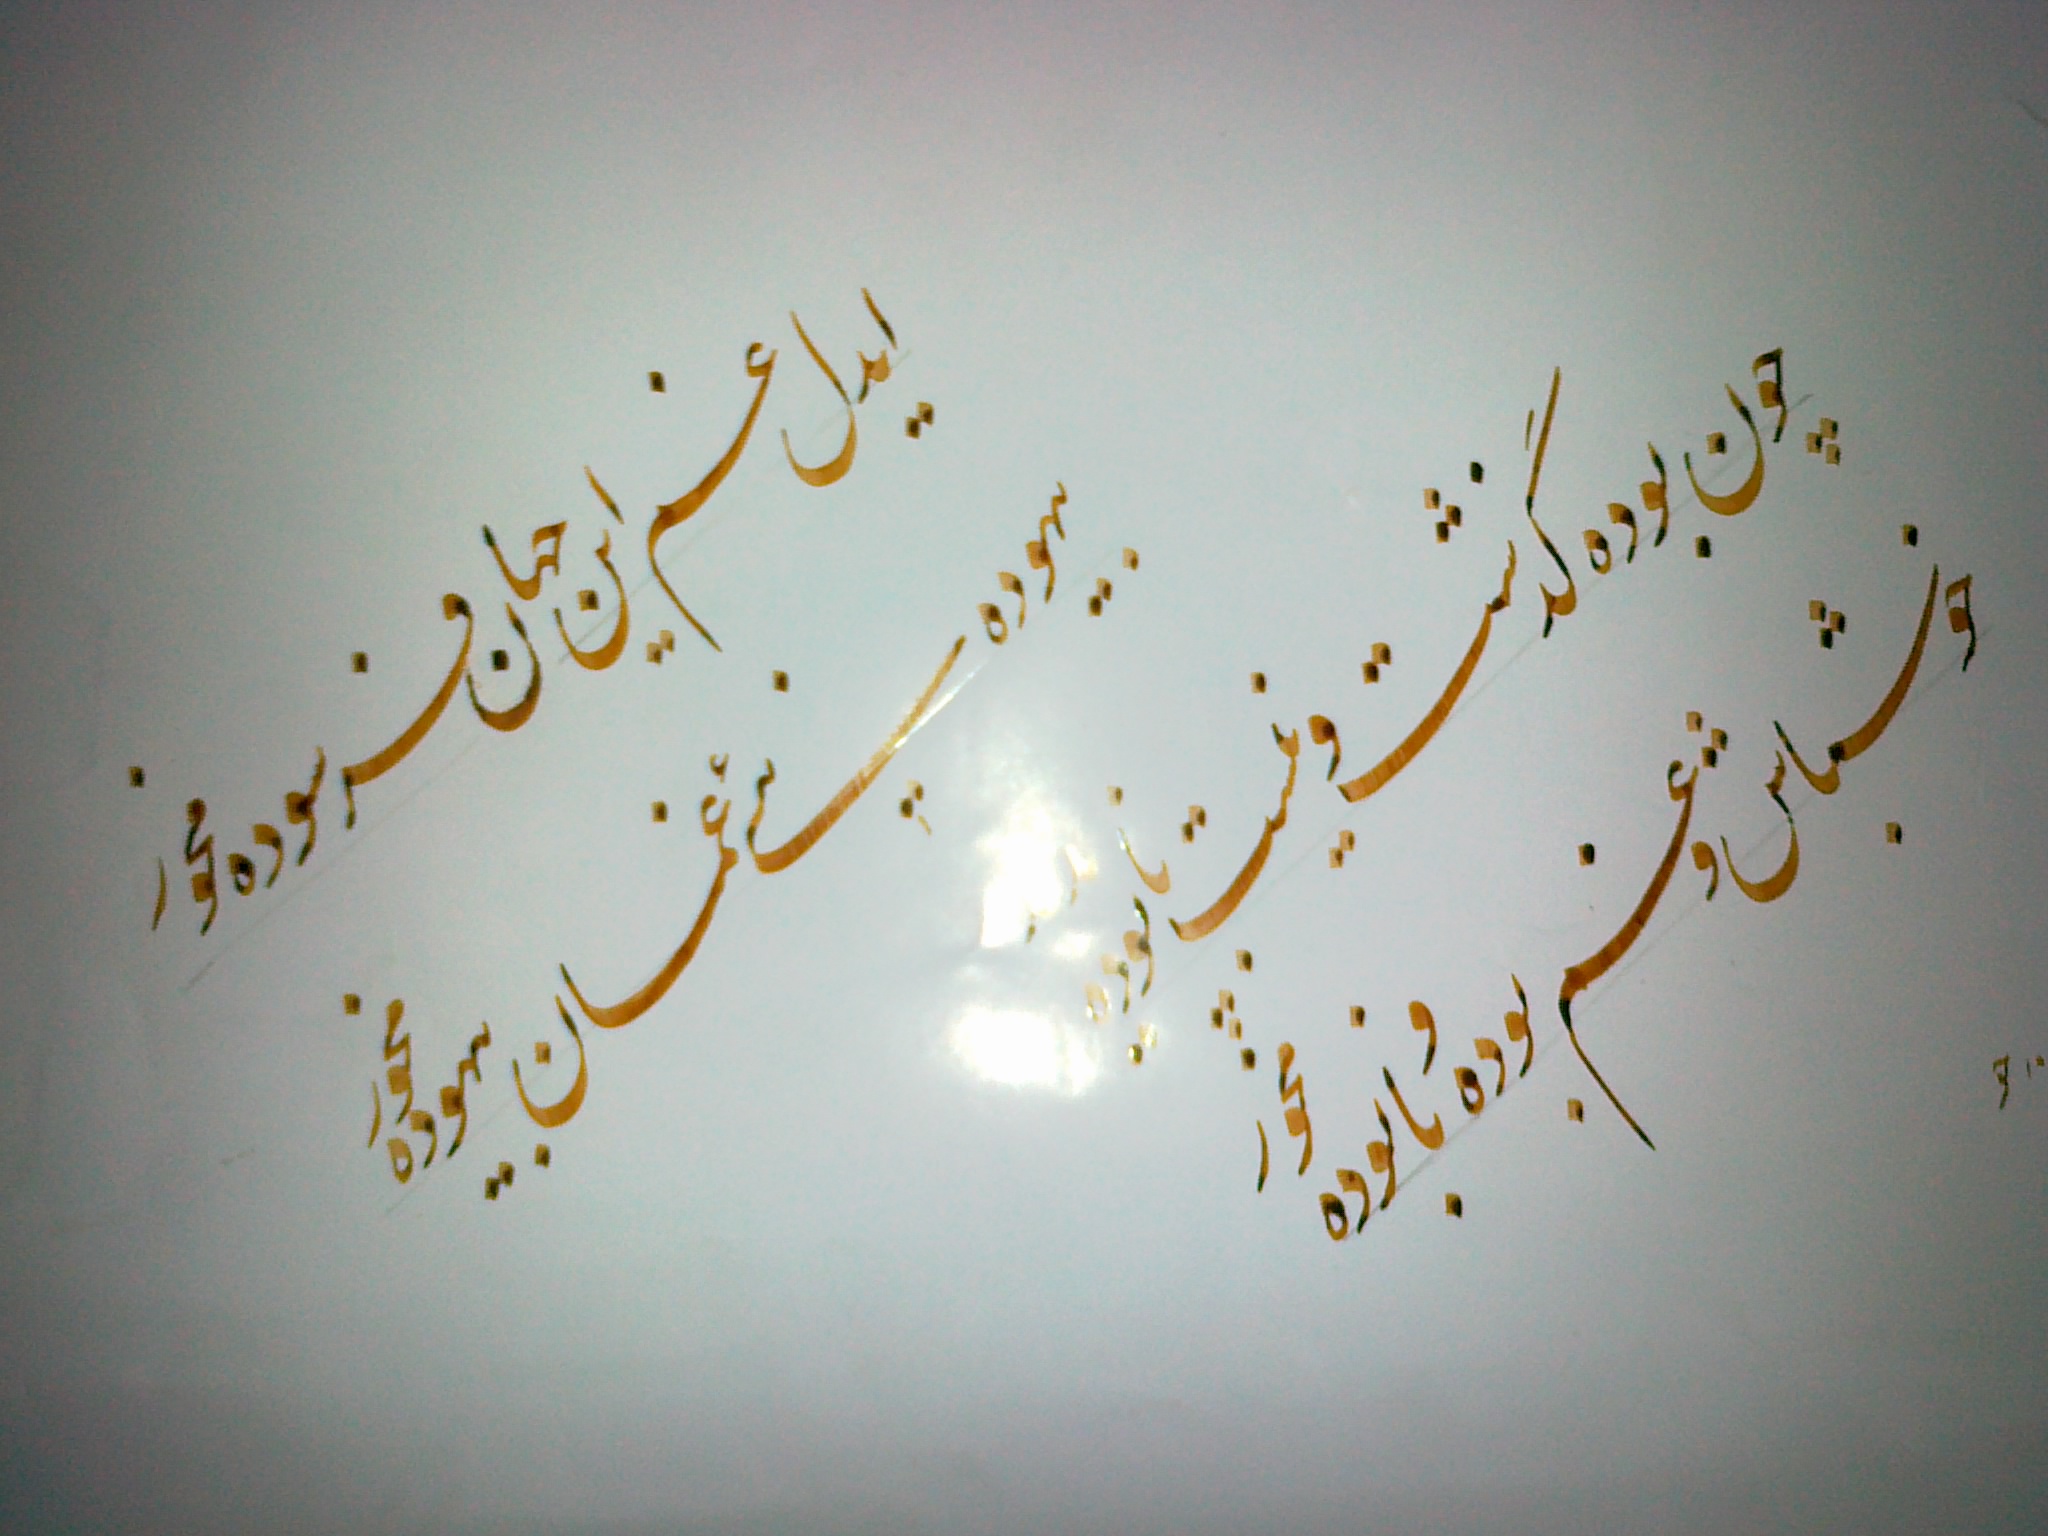 ایدل غم این جهان فرسوده مخور
بیهوده نئی غمان بیهوده مخور
چون بوده گذشت و نیست نابوده
خوش باش و غم بوده و نابوده مخور